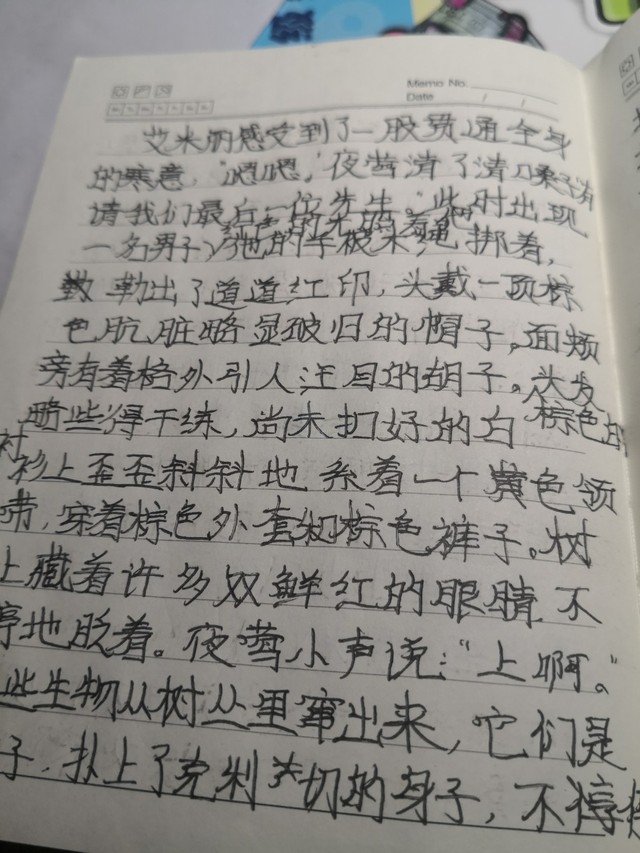 Memo No.
Date / /
艾米丽感受到了一股贯通全身
的寒意，“嗯嗯，”夜莺清了清嗓子，有
请我们最后一位先生。”此时出现
一名男子，他的手被木绳绑着，
勒出了道道红印，头戴一顶棕
色肮脏略显破旧的帽子，面颊
旁有着格外引人注目的胡子。头发
略些得干练，尚未扣好的白 棕色的
衬
衫上歪歪斜斜地系着一个黄色领
带，穿着棕色外套和棕色裤子。树
上藏着许多双鲜红的眼睛不
停地眨着。夜莺小声说：“上啊。”
些生物从树丛里窜出来，它们是
子，扑上了克利 切的身子，不停